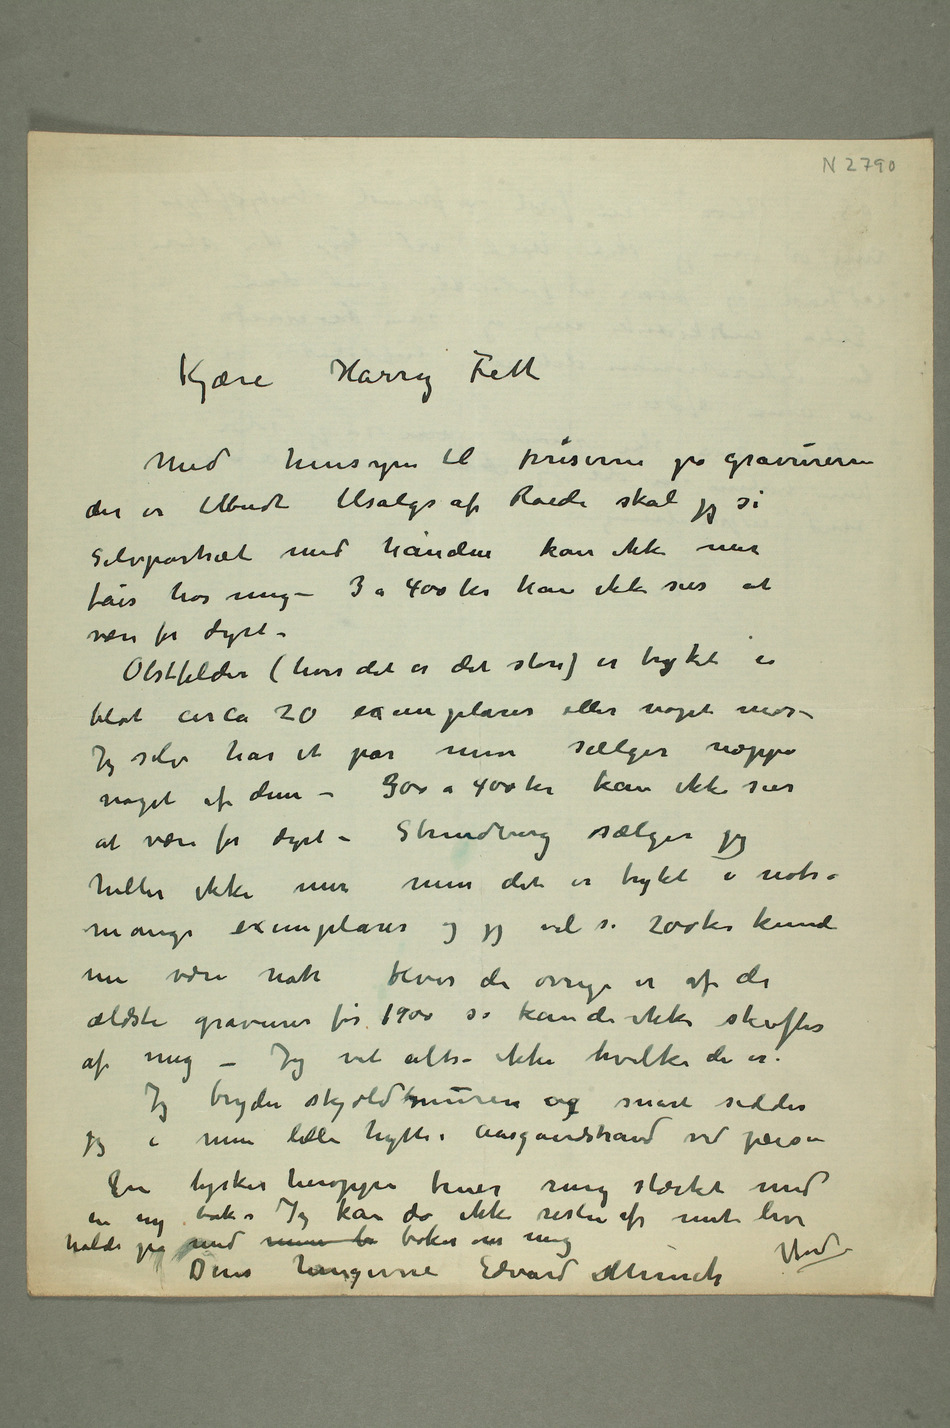 N 2790
Kjære Harry Fett
Med hensyn til priserne på gravurerne
der er tilbudt tilsalgs af Roede skal jeg si
Selvportræt med hånden kan ikke mer
fåes hos mig – 3 a 400 kr kan ikke sies at
være for dyrt –
Obstfelder (hvis det er det store) er trykket i
blot circa 20 exemplarer eller noget mer –
Jeg selv har et par men sælger neppe
noget af dem – 300 a 400 kr kan ikke sies
at være for dyrt – Strindberg sælger jeg
heller ikke mer men det er trykt i nok så
mange exemplarer og jeg vil si 200 kr kunde
nu være nok Hvis de øvrige er af de
ældste gravurer før 1900 så kan de ikke skaffes
af mig – Jeg vet altså ikke hvilke de er.
Jeg bryder skjoldmuren og snart sidder
jeg i min lille hytte i Aasgaardstrand ved peisen
En tysker heroppe truer mig stærkt med
en ny bok – Jeg kan da ikke resten af mit liv
holde på med bøker om mig
Deres hengivne Edvard Munch
Vend